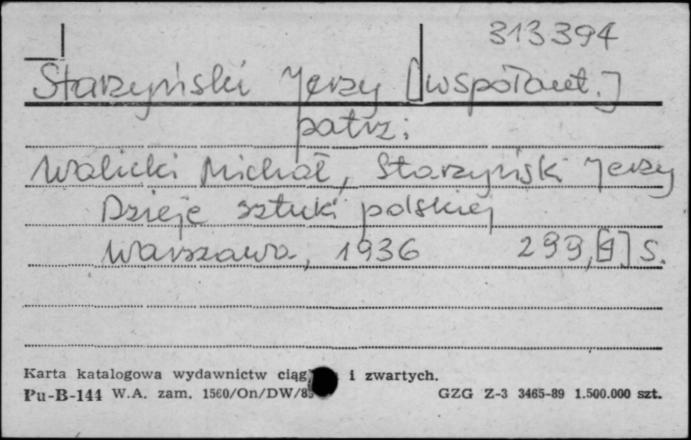 313394
Starzyński Jerzy [współaut.]
patrz:
Walicki Michał, Starzyński Jerzy
Dzieje sztuki polskiej
Warszawa, 1936 299,[1] s.
Karta katalogowa wydawnictw ciąg i zwartych.
Pu-B-144 W.A. zam. 1560/On/DW/8 GZG Z-3 3465-89 1.500.000 szt.